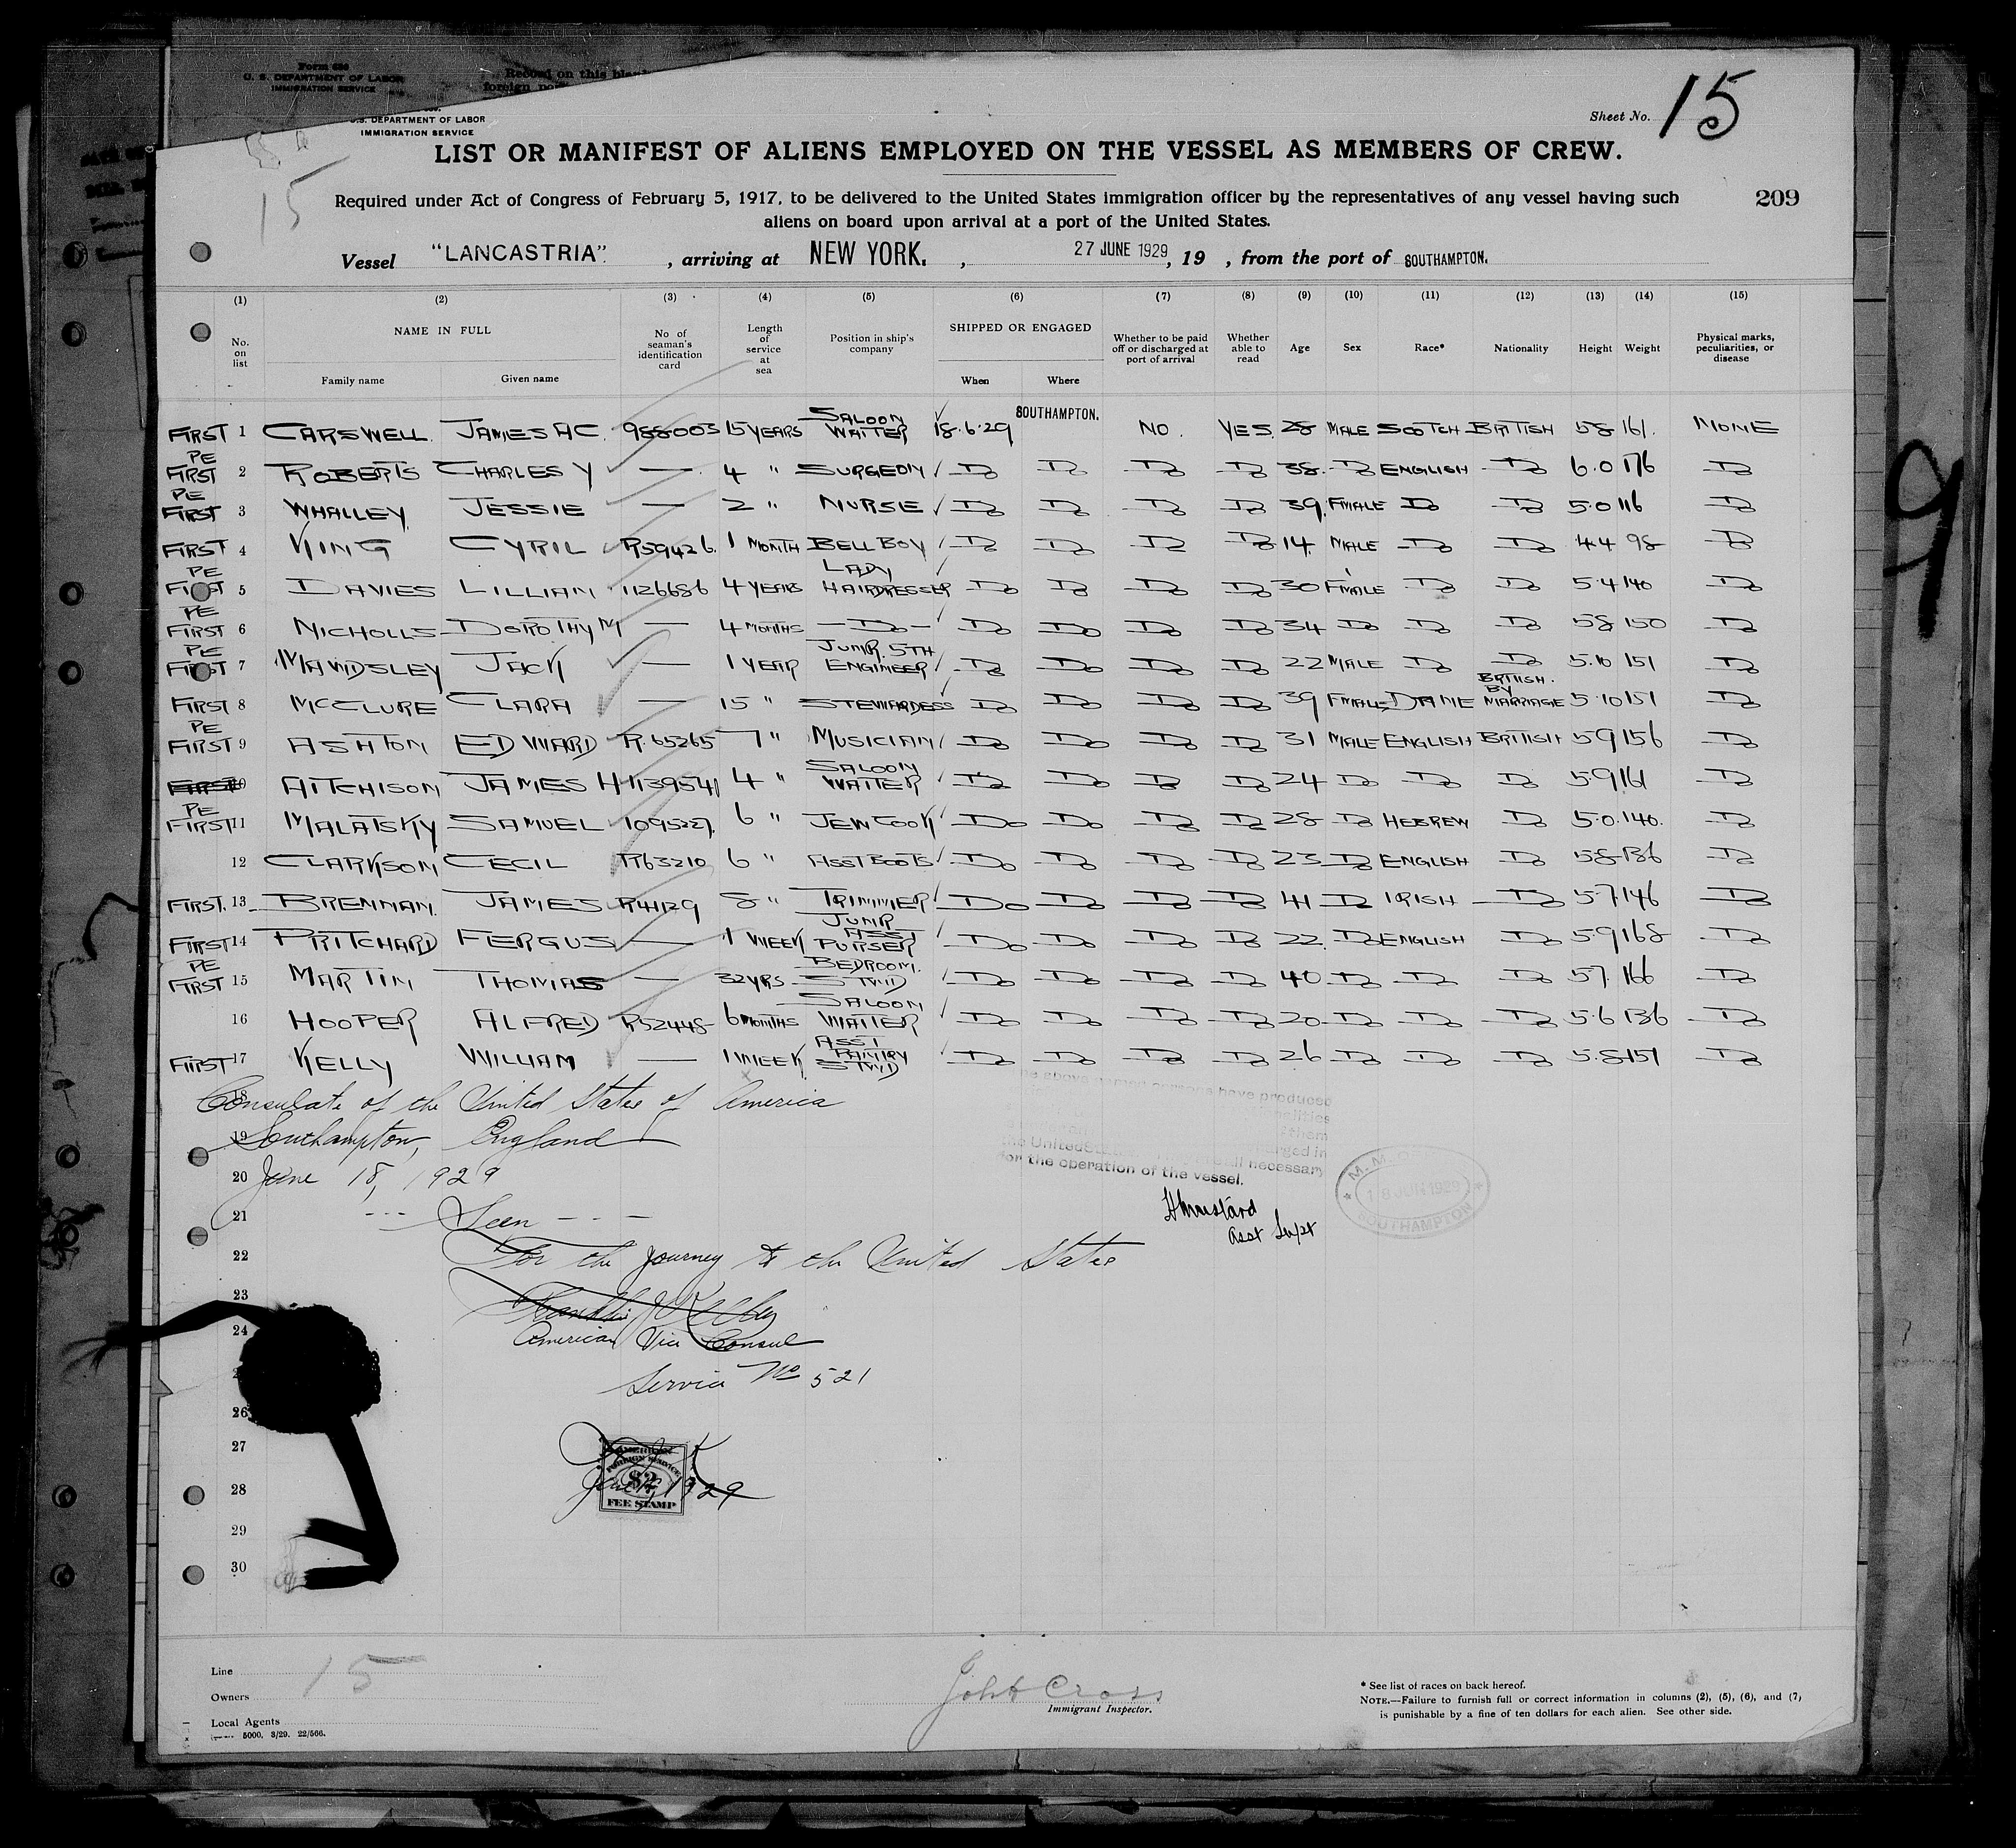 Form 680
U. S. DEPARTMENT OF LABOR
IMMIGRATION SERVICE
Record on this
foreign
U.S. DEPARTMENT OF LABOR
IMMIGRATION SERVICE
Sheet No. 15
15
LIST OR MANIFEST OF ALIENS EMPLOYED ON THE VESSEL AS MEMBERS OF CREW.
Required under Act of Congress of February 5, 1917, to be delivered to the United States immigration officer by the representatives of any vessel having such
aliens on board upon arrival at a port of the United States.
209
Vessel "LANCASTRIA". , arriving at NEW YORK. , 27 JUNE 1929, 19 , from the port of SOUTHAMPTON.
(1) (2) (3) (4) (5) (6) (7) (8) (9) (10) (11) (12) (13) (14) (15)
No. on list NAME IN FULL Family name Given name No of seaman's identification card Length of service at sea Position in ship's company SHIPPED OR ENGAGED When Where Whether to be paid off or discharged at port of arrival Whether able to read Age Sex Race* Nationality Height Weight Physical marks, peculiarities, or disease
FIRST 1 CARSWELL. JAMES A C. 988003 15 YEARS SALOON WAITER 18.6.29 SOUTHAMPTON. NO. YES. 28 MALE SCOTCH BRITISH 5 8 161. NONE
PE FIRST 2 ROBERTS CHARLES Y — 4 " SURGEON Do Do Do Do 38. Do ENGLISH Do 6.0 176 Do
PE FIRST 3 WHALLEY JESSIE — 2 " NURSE Do Do Do Do 39. FMALE Do Do 5.0 116 Do
FIRST 4 KING CYRIL R59426. 1 MONTH BELL BOY Do Do Do Do 14. MALE Do Do 4.4 98 Do
PE FIRST 5 DAVIES LILLIAN 1126686 4 YEARS LADY HAIRDRESSER Do Do Do Do 30 FMALE Do Do 5.4 140 Do
PE FIRST 6 NICHOLLS DOROTHY M — 4 MONTHS — Do — Do Do Do Do 34 Do Do Do 5 8 150 Do
PE FIRST 7 MAWDSLEY JACK — 1 YEAR JUNR. 5TH ENGINEER Do Do Do Do 22 MALE Do Do 5.10 151 Do
FIRST 8 MCCLURE CLARA — 15 " STEWARDESS Do Do Do Do 39 FMALE DANE BRITISH. BY MARRIAGE 5.10 151 Do
PE FIRST 9 ASHTON EDWARD R.65265 7 " MUSICIAN Do Do Do Do 31 MALE ENGLISH BRITISH 5 9 156 Do
FIRST 10 AITCHISON JAMES H 1139541 4 " SALOON WAITER Do Do Do Do 24 Do Do Do 5.9 161 Do
PE FIRST 11 MALATSKY SAMUEL 1095227. 6 " JEW COOK Do Do Do Do 28 Do HEBREW Do 5.0. 140. Do
12 CLARKSON CECIL R63210 6 " ASST BOOTS Do Do Do Do 23 Do ENGLISH Do 5 8 136 Do
FIRST. 13 BRENNAN. JAMES R44129 8 " TRIMMER Do Do Do Do 41 Do IRISH Do 5.7 146 Do
FIRST 14 PRITCHARD FERGUS — 1 WEEK JUNR ASST PURSER Do Do Do Do 22. Do ENGLISH Do 5.9 168 Do
PE FIRST 15 MARTIN THOMAS — 32 YRS BEDROOM. STWD Do Do Do Do 40 Do Do Do 5 7. 166 Do
16 HOOPER ALFRED R52448 6 MONTHS SALOON WAITER Do Do Do Do 20 Do Do Do 5.6 136 Do
FIRST 17 KELLY WILLIAM — 1 WEEK ASST PANTRY STWD Do Do Do Do 26 Do Do Do 5.8 151 Do
18 Consulate of the United States of America
19 Southampton, England
20 June 18, 1929
21 --- Seen ---
22 For the journey to the United States
23
24 American Vice Consul
Service No 521
26
27
28
29
30
the above named persons have produced
the United all necessary
for the operation of the vessel.
Asst Supt
18 JUN 1929
SOUTHAMPTON
AMERICAN
FOREIGN SERVICE
$2
FEE STAMP
June 1929
Line 15
Owners
Local Agents
5000. 3/29. 22/566.
John Cross
Immigrant Inspector.
* See list of races on back hereof.
NOTE.—Failure to furnish full or correct information in columns (2), (5), (6), and (7)
is punishable by a fine of ten dollars for each alien. See other side.